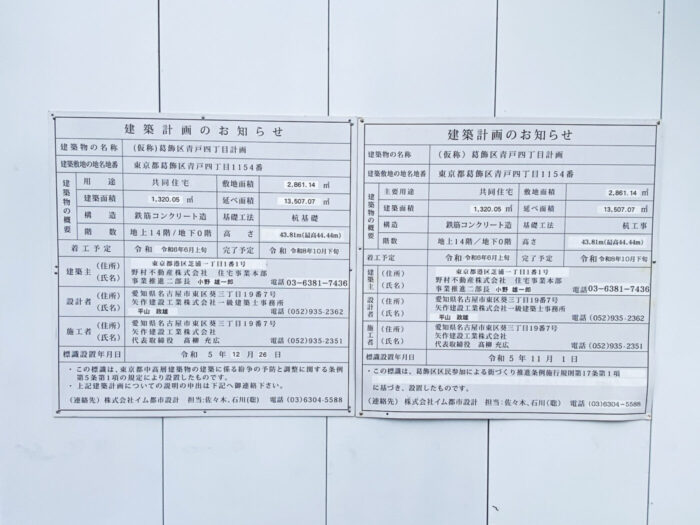 建築計画のお知らせ
建築物の名称 (仮称)葛飾区青戸四丁目計画
建築敷地の地名地番 東京都葛飾区青戸四丁目1154番
建築物の概要
用途 共同住宅 敷地面積 2,861.14 ㎡
建築面積 1,320.05 ㎡ 延べ面積 13,507.07 ㎡
構造 鉄筋コンクリート造 基礎工法 杭基礎
階数 地上14階/地下0階 高さ 43.81m(最高44.44m)
着工予定 令和 令和6年6月上旬 完了予定 令和 令和8年10月下旬
建築主 (住所) 東京都港区芝浦一丁目1番1号
野村不動産株式会社 住宅事業本部
(氏名) 事業推進二部長 小野 雄一郎 電話03-6381-7436
設計者 (住所) 愛知県名古屋市東区葵三丁目19番7号
矢作建設工業株式会社一級建築士事務所
(氏名) 平山 政雄 電話(052)935-2362
施工者 (住所) 愛知県名古屋市東区葵三丁目19番7号
矢作建設工業株式会社
(氏名) 代表取締役 高柳 充広 電話(052)935-2351
標識設置年月日 令和 5年 12月 26日
・この標識は、東京都中高層建築物の建築に係る紛争の予防と調整に関する条例
第5条第1項の規定により設置したものです。
・上記建築計画についての説明の申出は下記へ御連絡下さい。
(連絡先) 株式会社イム都市設計 担当:佐々木、石川(聡) 電話(03)6304-5588
建築計画のお知らせ
建築物の名称 (仮称)葛飾区青戸四丁目計画
建築敷地の地名地番 東京都葛飾区青戸四丁目1154番
建築物の概要
主要用途 共同住宅 敷地面積 2,861.14 ㎡
建築面積 1,320.05 ㎡ 延べ面積 13,507.07 ㎡
構造 鉄筋コンクリート造 基礎工法 杭工事
階数 地上14階/地下0階 高さ 43.81m(最高44.44m)
着工予定 令和 令和6年6月上旬 完了予定 令和 令和8年10月下旬
建築主 (住所) 東京都港区芝浦一丁目1番1号
野村不動産株式会社 住宅事業本部
(氏名) 事業推進二部長 小野 雄一郎 電話03-6381-7436
設計者 (住所) 愛知県名古屋市東区葵三丁目19番7号
矢作建設工業株式会社一級建築士事務所
(氏名) 平山 政雄 電話(052)935-2362
施工者 (住所) 愛知県名古屋市東区葵三丁目19番7号
矢作建設工業株式会社
(氏名) 代表取締役 高柳 充広 電話(052)935-2351
標識設置年月日 令和 5年 11月 1日
・この標識は、葛飾区区民参加による街づくり推進条例施行規則第17条第1項
に基づき、設置したものです。
(連絡先) 株式会社イム都市設計 担当:佐々木、石川(聡) 電話(03)6304-5588